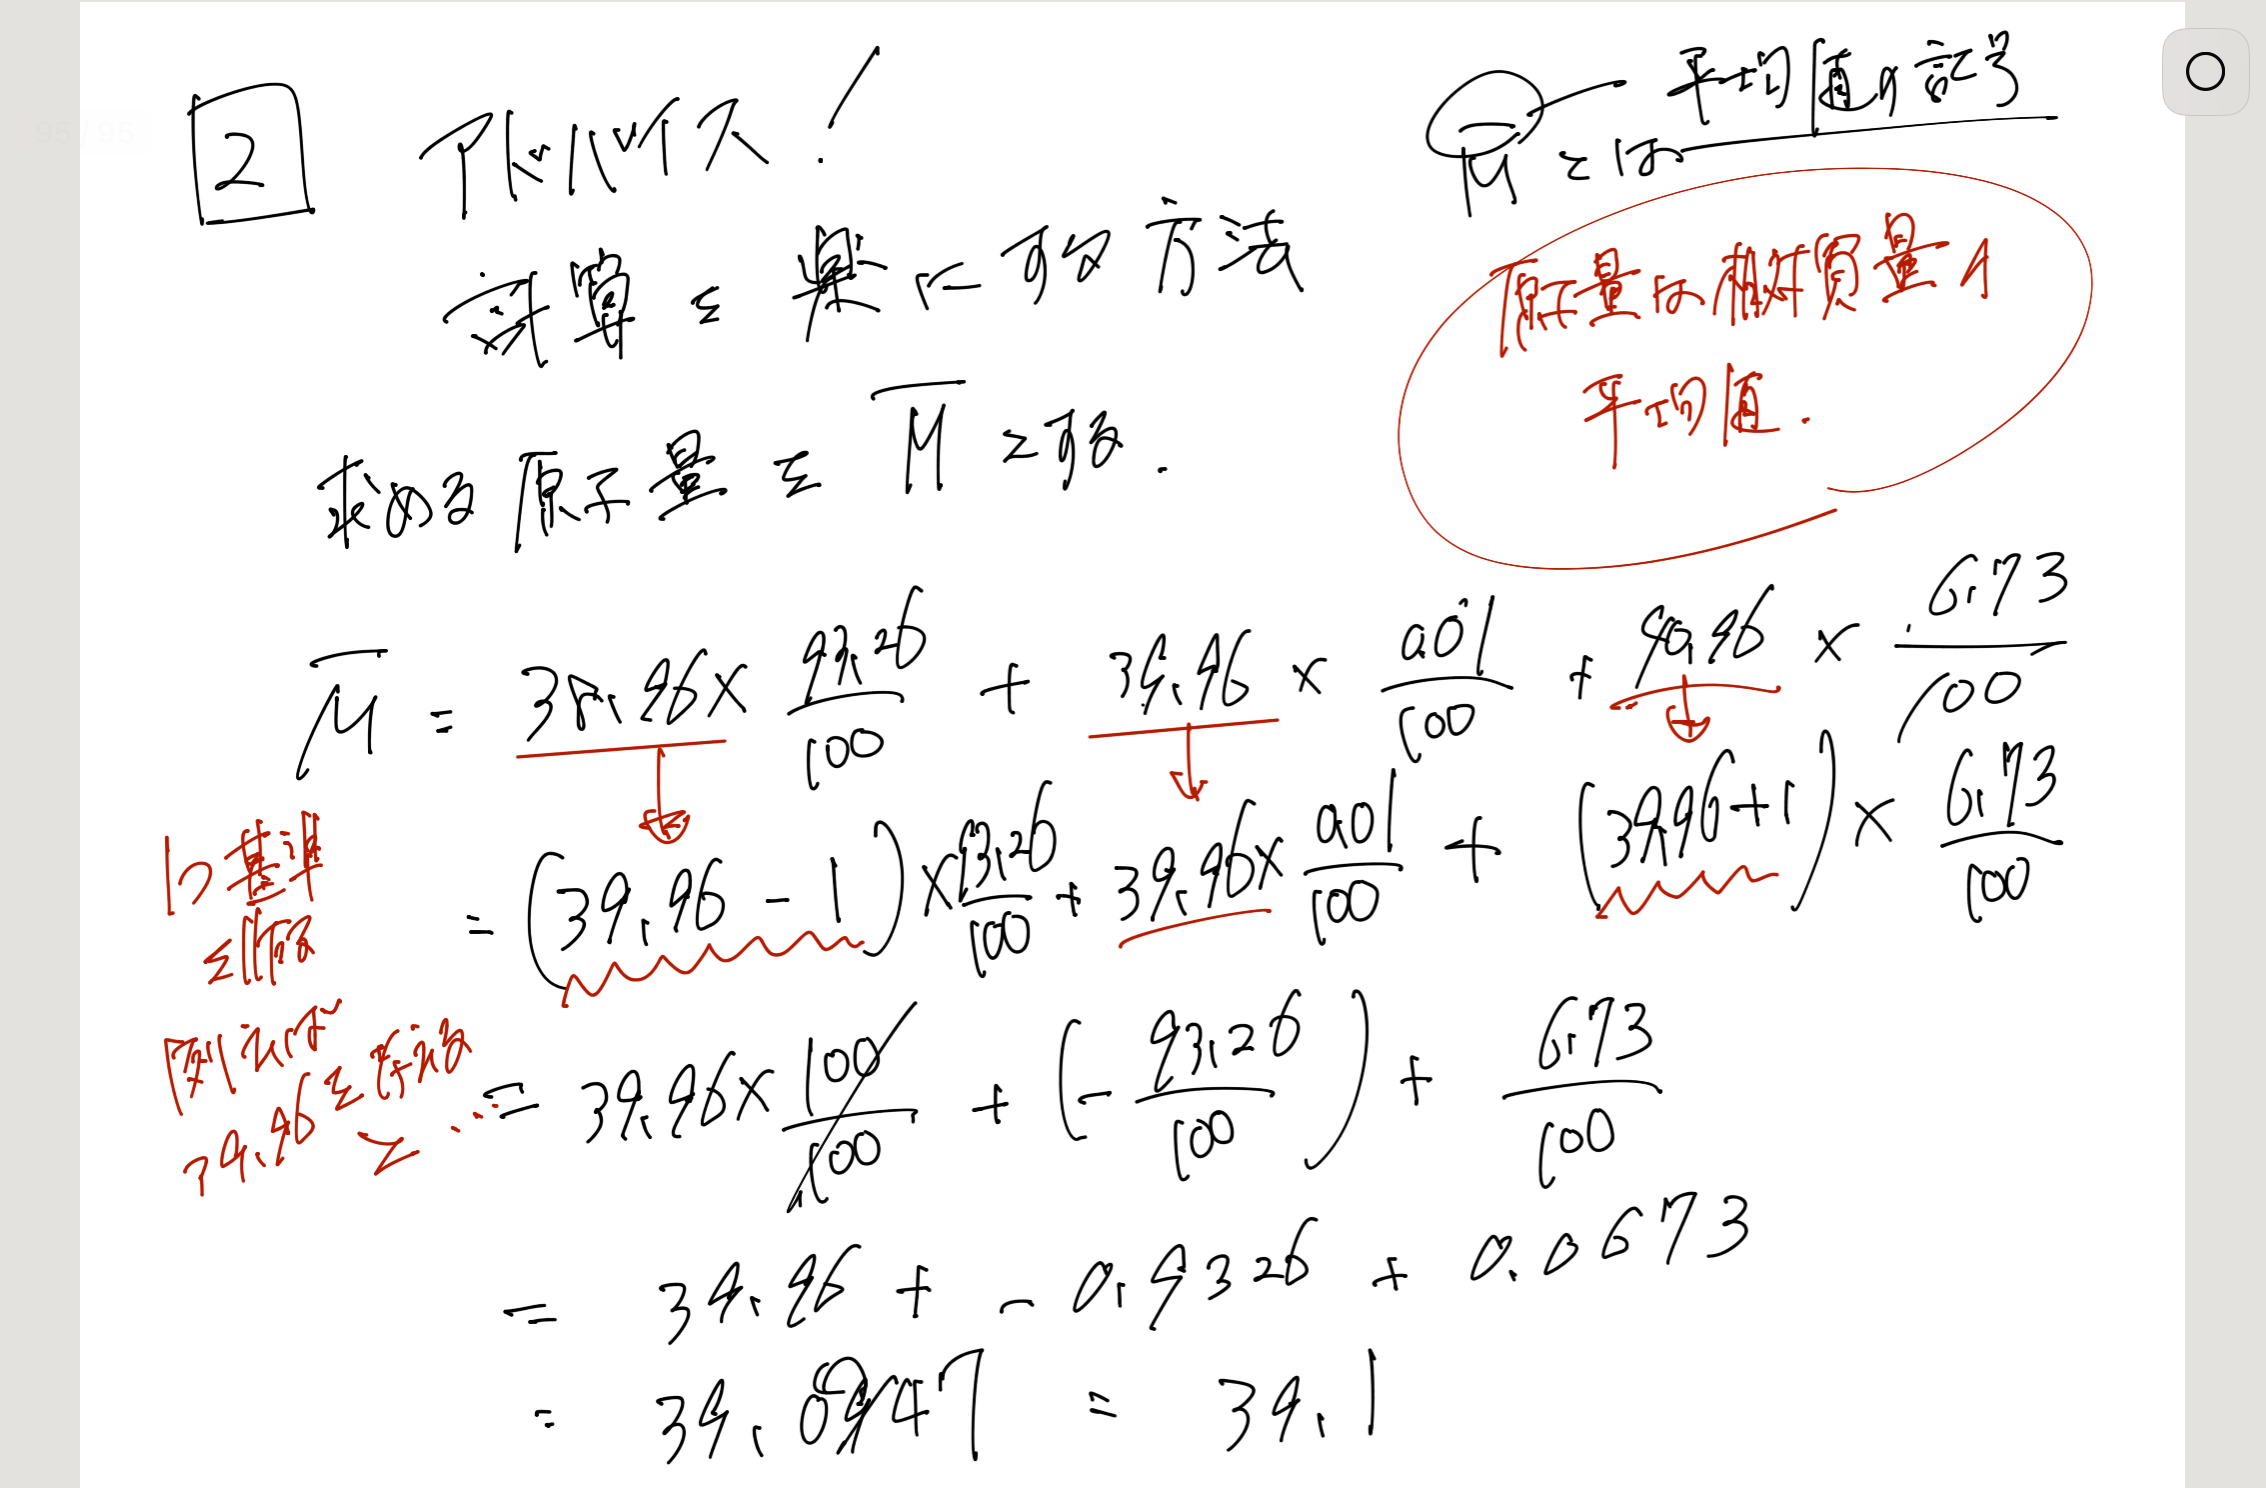 2 アドバイス!
M̄ とは 平均値の記号
計算を楽にする方法
原子量は相対質量の
平均値.
求める原子量を M̄ とする.
M̄ = 38.96× 93.26/100 + 39.96 × 0.01/100 + 40.96 × 6.73/100
= (39.96 - 1) × 93.26/100 + 39.96 × 0.01/100 + (39.96+1) × 6.73/100
1つ基準
を
例えば
39.96を
と…
= 39.96× 100/100 + (- 93.26/100) + 6.73/100
= 39.96 + - 0.9326 + 0.0673
= 39.0947 = 39.1